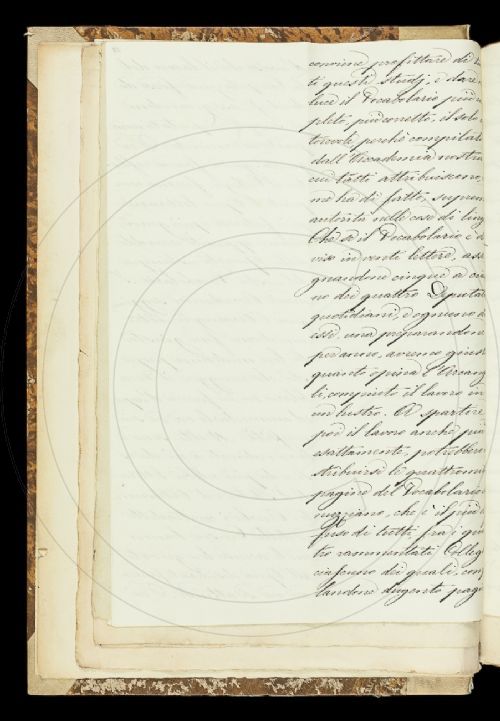 conviene profittare di
ti questi studj, e dare
luce il Vocabolario più
pleto, più corretto, il solo
torevole perchè compilato
dall'Accademia nostra
cui tutti attribuiscono,
ne ha di fatto, suprem
autorità nelle cose di ling
Che se il Vocabolario è d
viso in venti lettere, ass
gnandone cinque a cia
no dei quattro Deputat
quotidiani, e ognuno d
essi, una preparandone
per anno, avremo giust
quanto opina l'Arcang
li, compiuto il lavoro in
un lustro. A spartire
poi il lavoro anche più
esattamente, potrebbero
stribuirsi le quattromi
pagine del Vocabolario
nuzziano, che è il più
fuso di tutti, fra i qua
tro rammentati Colleg
ciascuno dei quali, com
landone dugento pag